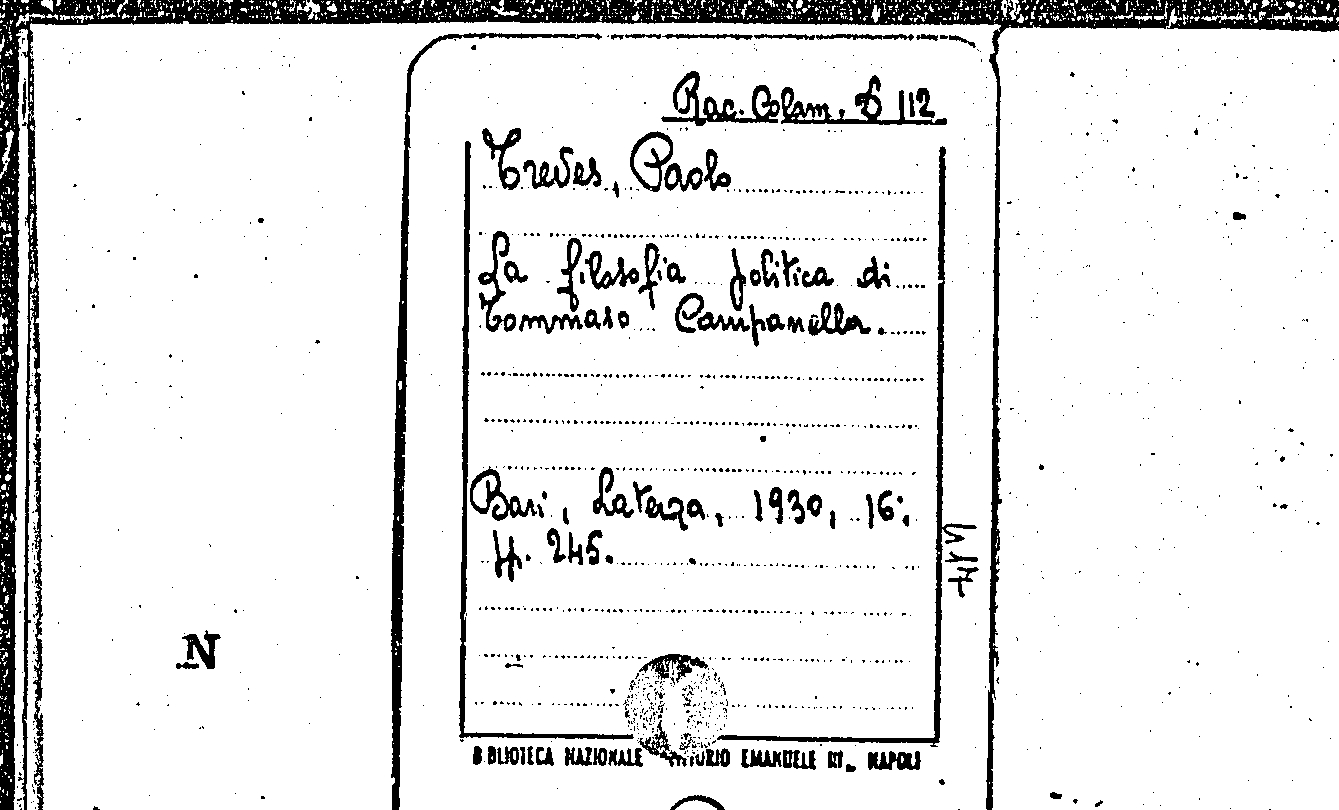 Rac. Colam. D 112
Treves, Paolo
La filosofia politica di
Tommaso Campanella.
Bari, Laterza, 1930, 16°,
pp. 245.
N
BIBLIOTECA NAZIONALE VITTORIO EMANUELE III - NAPOLI